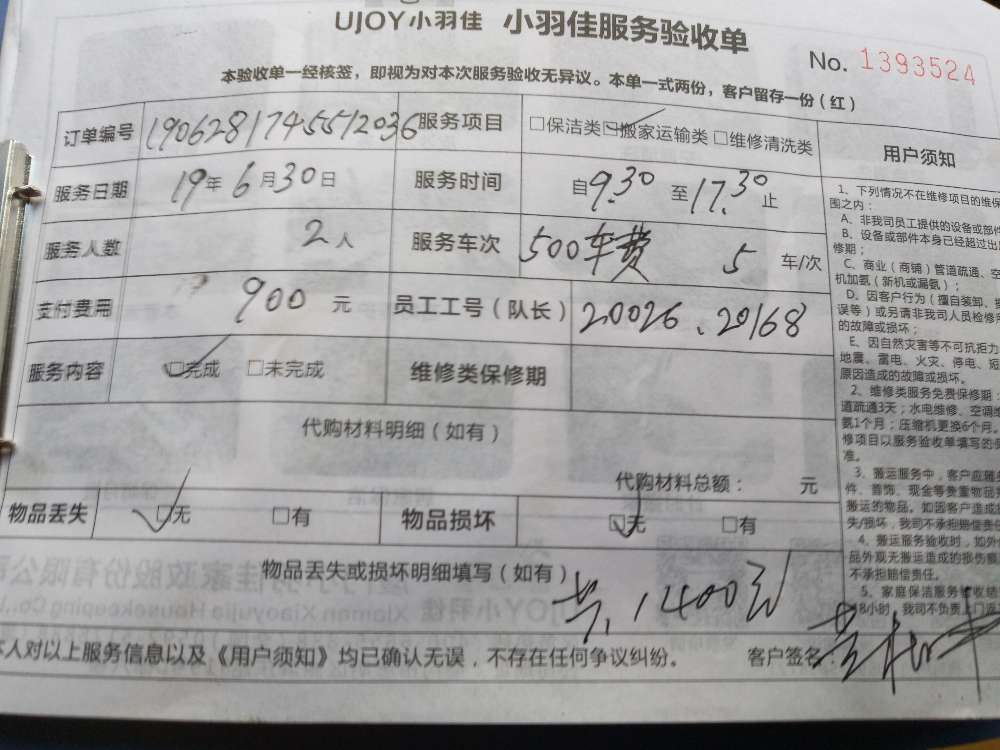 UJOY小羽佳 小羽佳服务验收单
No. 1393524
本验收单一经核签，即视为对本次服务验收无异议。本单一式两份，客户留存一份（红）
订单编号 1906281745512036 服务项目 □保洁类 ☑搬家运输类 □维修清洗类
服务日期 19年6月30日 服务时间 自9.30至17.30止
服务人数 2人 服务车次 500车费 5 车/次
支付费用 900 元 员工工号（队长） 20026、20168
服务内容 ☑完成 □未完成 维修类保修期
代购材料明细（如有）
代购材料总额： 元
物品丢失 ☑无 □有 物品损坏 ☑无 □有
物品丢失或损坏明细填写（如有）
共，1400元
本人对以上服务信息以及《用户须知》均已确认无误，不存在任何争议纠纷。 客户签名：
用户须知
1、下列情况不在维修项目的维保
围之内：
A、非我司员工提供的设备或部件
B、设备或部件本身已经超过出
修期；
C、商业（商铺）管道疏通、空
机加氨（新机或漏氨）；
D、因客户行为（擅自装卸、
误等）或另请非我司人员检修
的故障或损坏；
E、因自然灾害等不可抗拒力
地震、雷电、火灾、停电、短
原因造成的故障或损坏。
2、维修类服务免费保修期：
道疏通3天；水电维修、空调
氨1个月；压缩机更换6个月。
修项目以服务验收单填写的
准。
3、搬运服务中，客户应随
件、首饰、现金等贵重物品
搬运的物品。如因客户造成
失/损坏，我司不承担赔偿责
4、搬运服务验收时，如外
品外观无搬运造成的损伤痕
不承担赔偿责任。
5、家庭保洁服务验收结
48小时，我司不负责上门返